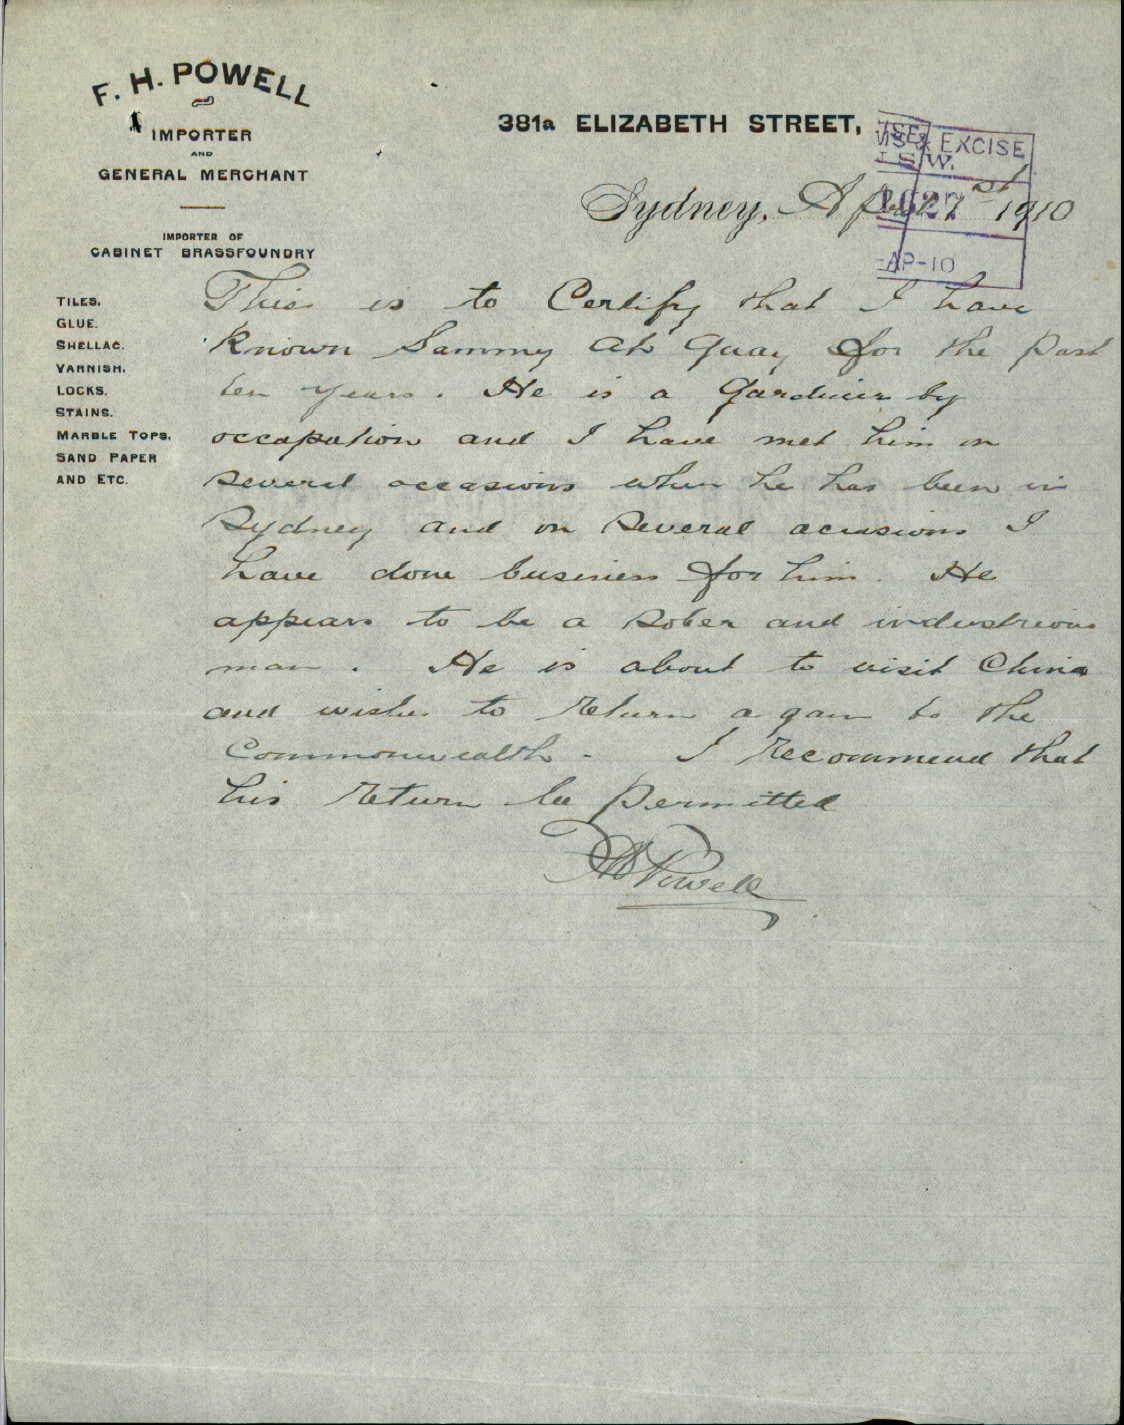 F. H. POWELL
IMPORTER
AND
GENERAL MERCHANT
IMPORTER OF
CABINET BRASSFOUNDRY
TILES.
GLUE.
SHELLAC.
VARNISH.
LOCKS.
STAINS.
MARBLE TOPS.
SAND PAPER
AND ETC.
381a ELIZABETH STREET,
EXCISE
S.W.
AP-10
Sydney, April 1910
This is to Certify that I have
known Sammy Ah Quay for the past
ten years. He is a Gardiner by
occupation and I have met him on
several occasions when he has been in
Sydney and on several acussions I
have done business for him. He
appears to be a sober and industrious
man. He is about to visit China
and wishes to return again to the
Commonwealth. I recommend that
his return be permitted
FH Powell